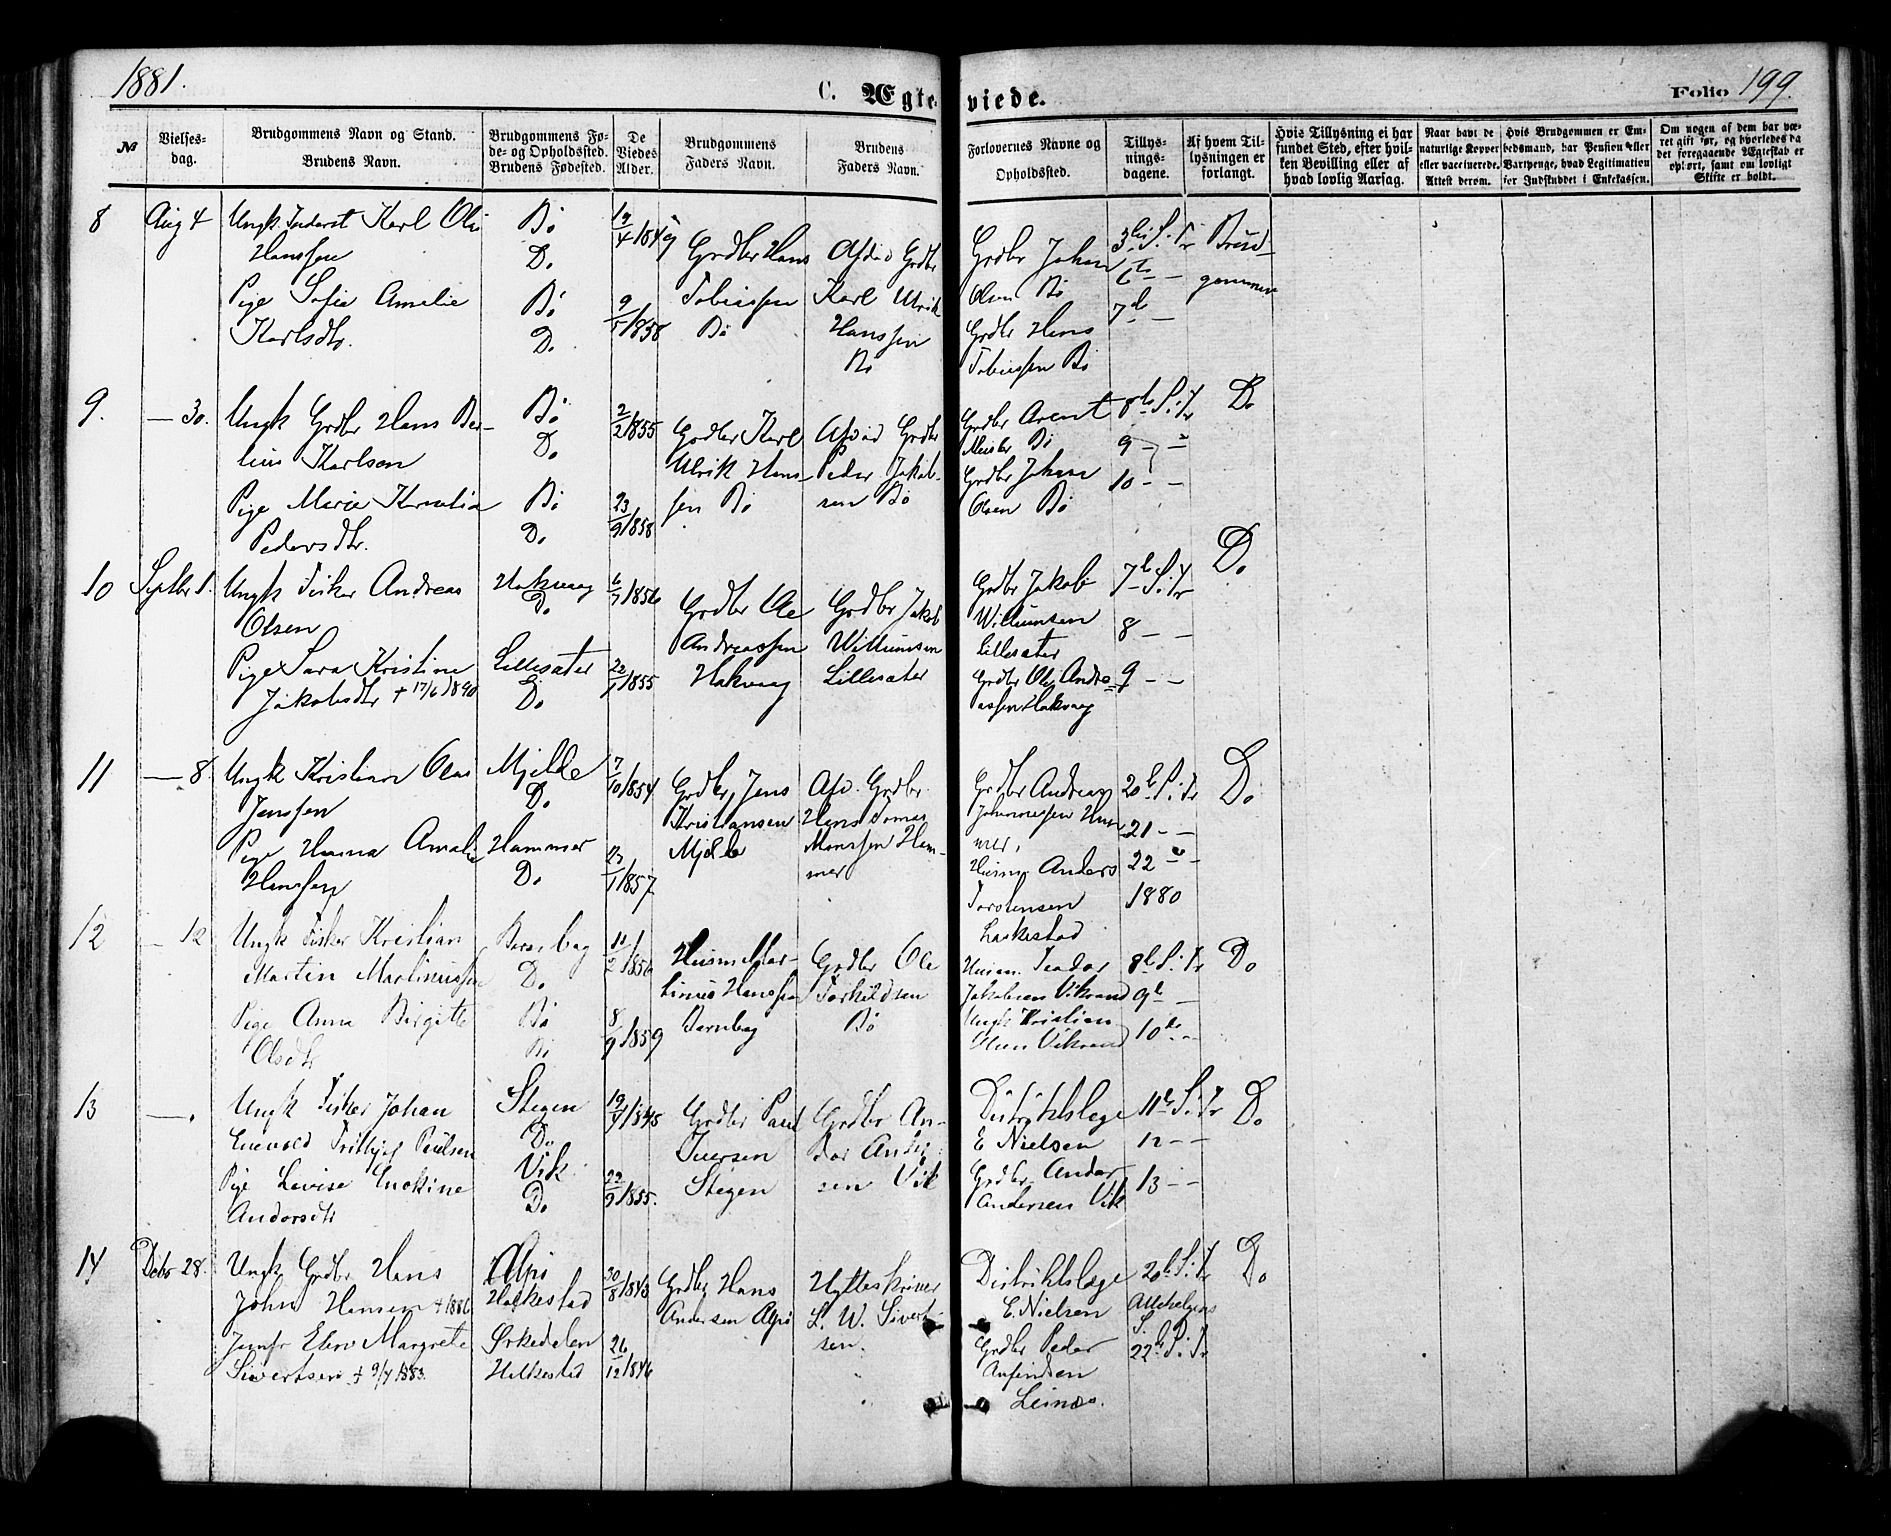 1881.
C. Ægte- viede.
Folio 199.
№
Vielses-
dag.
Brudgommens Navn og Stand.
Brudens Navn.
Brudgommens Fø-
de- og Opholdssted.
Brudens Fødested.
De
Viedes
Alder.
Brudgommens
Faders Navn.
Brudens
Faders Navn.
Forlovernes Navne og
Opholdssted.
Tillys-
nings-
dagene.
Af hvem Til-
lysningen er
forlangt.
Hvis Tillysning ei har
fundet Sted, efter hvil-
ken Bevilling eller af
hvad lovlig Aarsag.
Naar havt de
naturlige Kopper
eller vaccinerede.
Attest derom.
Hvis Brudgommen er Em-
bedsmand, har Pension eller
Vartpenge, hvad Legitimation
for Indskuddet i Enkekassen.
Om nogen af dem har væ-
ret gift før, og hvorledes da
det foregaaende Ægteskab er
ophørt, samt om lovligt
Skifte er holdt.
8
Aug 4
Ungk. Inderst Karl Ole
Hanssen
Pige Sofie Amalie
Karlsdtr.
Bø
Do
Bø
Do
19/4 18
9/5 1858
Grdbr Hans
Tobiassen
Bø
Afdød Grdbr
Karl Ulrik
Hanssen
Bø
Grdbr Johan
Olsen Bø
Grdbr Hans
Tobiassen Bø
3die S. Tr
6te — —
7de —
Brud-
gommen
9.
— 30.
Ungk Grdbr Hans Ber-
lius Karlsen
Pige Marie Kornelia
Pedersdtr.
Bø
Do
Bø
Do
2/2 1855
23/9 1858
Grdbr Karl
Ulrik Hans-
sen Bø
Afdød Grdbr
Peder Jakob-
sen Bø
Grdbr Arent
Meisler Bø
Grdbr Johan
Olsen Bø
8de S. f. Tr
9 — —
10 — —
Do
10
Septbr 1.
Ungk Fisker Andreas
Olsen
Pige Sara Kristine
Jakobsdtr + 17/6 1890
Hakvaag
Do
Lillesæter
Do
6/7 1856
22/1 1855
Grdbr Ole
Andreassen
Hakvaag
Grdbr Jakob
Willumsen
Lillesæter
Grdbr Jakob
Willumsen
Lillesæter
Grdbr Ole Andre-
assen Hakvaag
7de S. f. Tr
8 — —
9 — —
Do
11
— 8.
Ungk Kristian Olai
Jenssen
Pige Hanna Amalie
Hanssen
Mjelde
Do
Hammer
Do
7/10 1854
/1 1857
Grdbr Jens
Kristiansen
Mjelde
Afd. Grdbr
Hans Tomas
Monssen Ham-
mer
Grdbr Andreas
Johannessen Ham-
mer,
Husm. Anders
Torstensen
Laskestad
20de S. f. Tr
21 — —
22 — —
1880
Do
12
— 12
Ungk Fisker Kristian
Martin Martinussen
Pige Anna Birgitte
Olsdtr
Do
Bø
Bø
11/2 1856
8/9 1859
Husm Mar-
tinus Hanssen
Grdbr Ole
Torkildsen
Bø
Husm. Teodor
Jakobsen Vikrand
Ungk Kristian
Vikrand
8de S. f. Tr
9de —
10de — —
Do
13
— .
Ungk Fisker Johan
Enevold Frithjof Paulsen
Pige Lovise Enokine
Andorsdtr
Stegen
Do
Vik
Do
19/4 1845
22/9 1855.
Grdbr Paul
Iversen
Stegen
Grdbr An-
dor Ander-
sen Vik
Distriktslæge
E Nielsen
Grdbr. Andor
Andersen Vik
11te S. f. Tr
12 — —
13 — —
Do
14
Debr 28.
Ungk Grdbr Hans
John Hansen + 1886
Jomfr Elen Margrete
Sivertsen + 9/4 1883.
Alpø
Helkestad
Ørkedalen
Helkestad
30/8 1843
26/12 1846
Grdbr Hans
Andersen Alpø
Hytteskriver
L. W. Sivert-
sen.
Distriktslæge
E. Nielsen
Grdbr Peder
Anfindsen
Leines.
20de S. f. Tr
Allehelgens
S.
22de S. f. Tr
Do